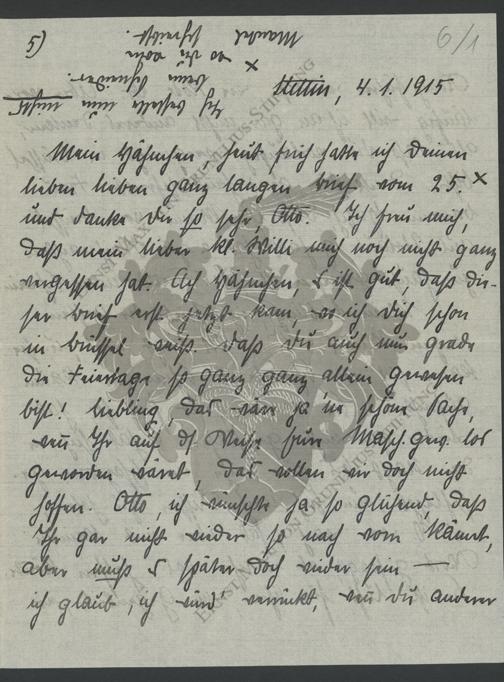 5)
6/1
Stettin, 4.1.1915
Mein Hähnchen, heut früh hatte ich Deinen
lieben lieben ganz langen Brief vom 25. x
und danke Dir so sehr, Otto. Ich freu mich,
daß mein lieber kl. Willi mich noch nicht ganz
vergessen hat. Ach Hähnchen, 's ist gut, daß die-
ser Brief erst jetzt kam, wo ich Dich schon
in Brüssel weiß. Daß Du auch nun grade
die Feiertage so ganz ganz allein gewesen
bist! Liebling, das wäre ja 'ne schöne Sache,
wenn Ihr auf ds Weise Eure Masch.gew. los
geworden wäret, das wollen wir doch nicht
hoffen. Otto, ich wünschte ja so glühend, daß
Ihr gar nicht wieder so nach vorn kämet,
aber muß 's später doch wieder sein —
ich glaub, ich würd' verrückt, wenn Du anderer